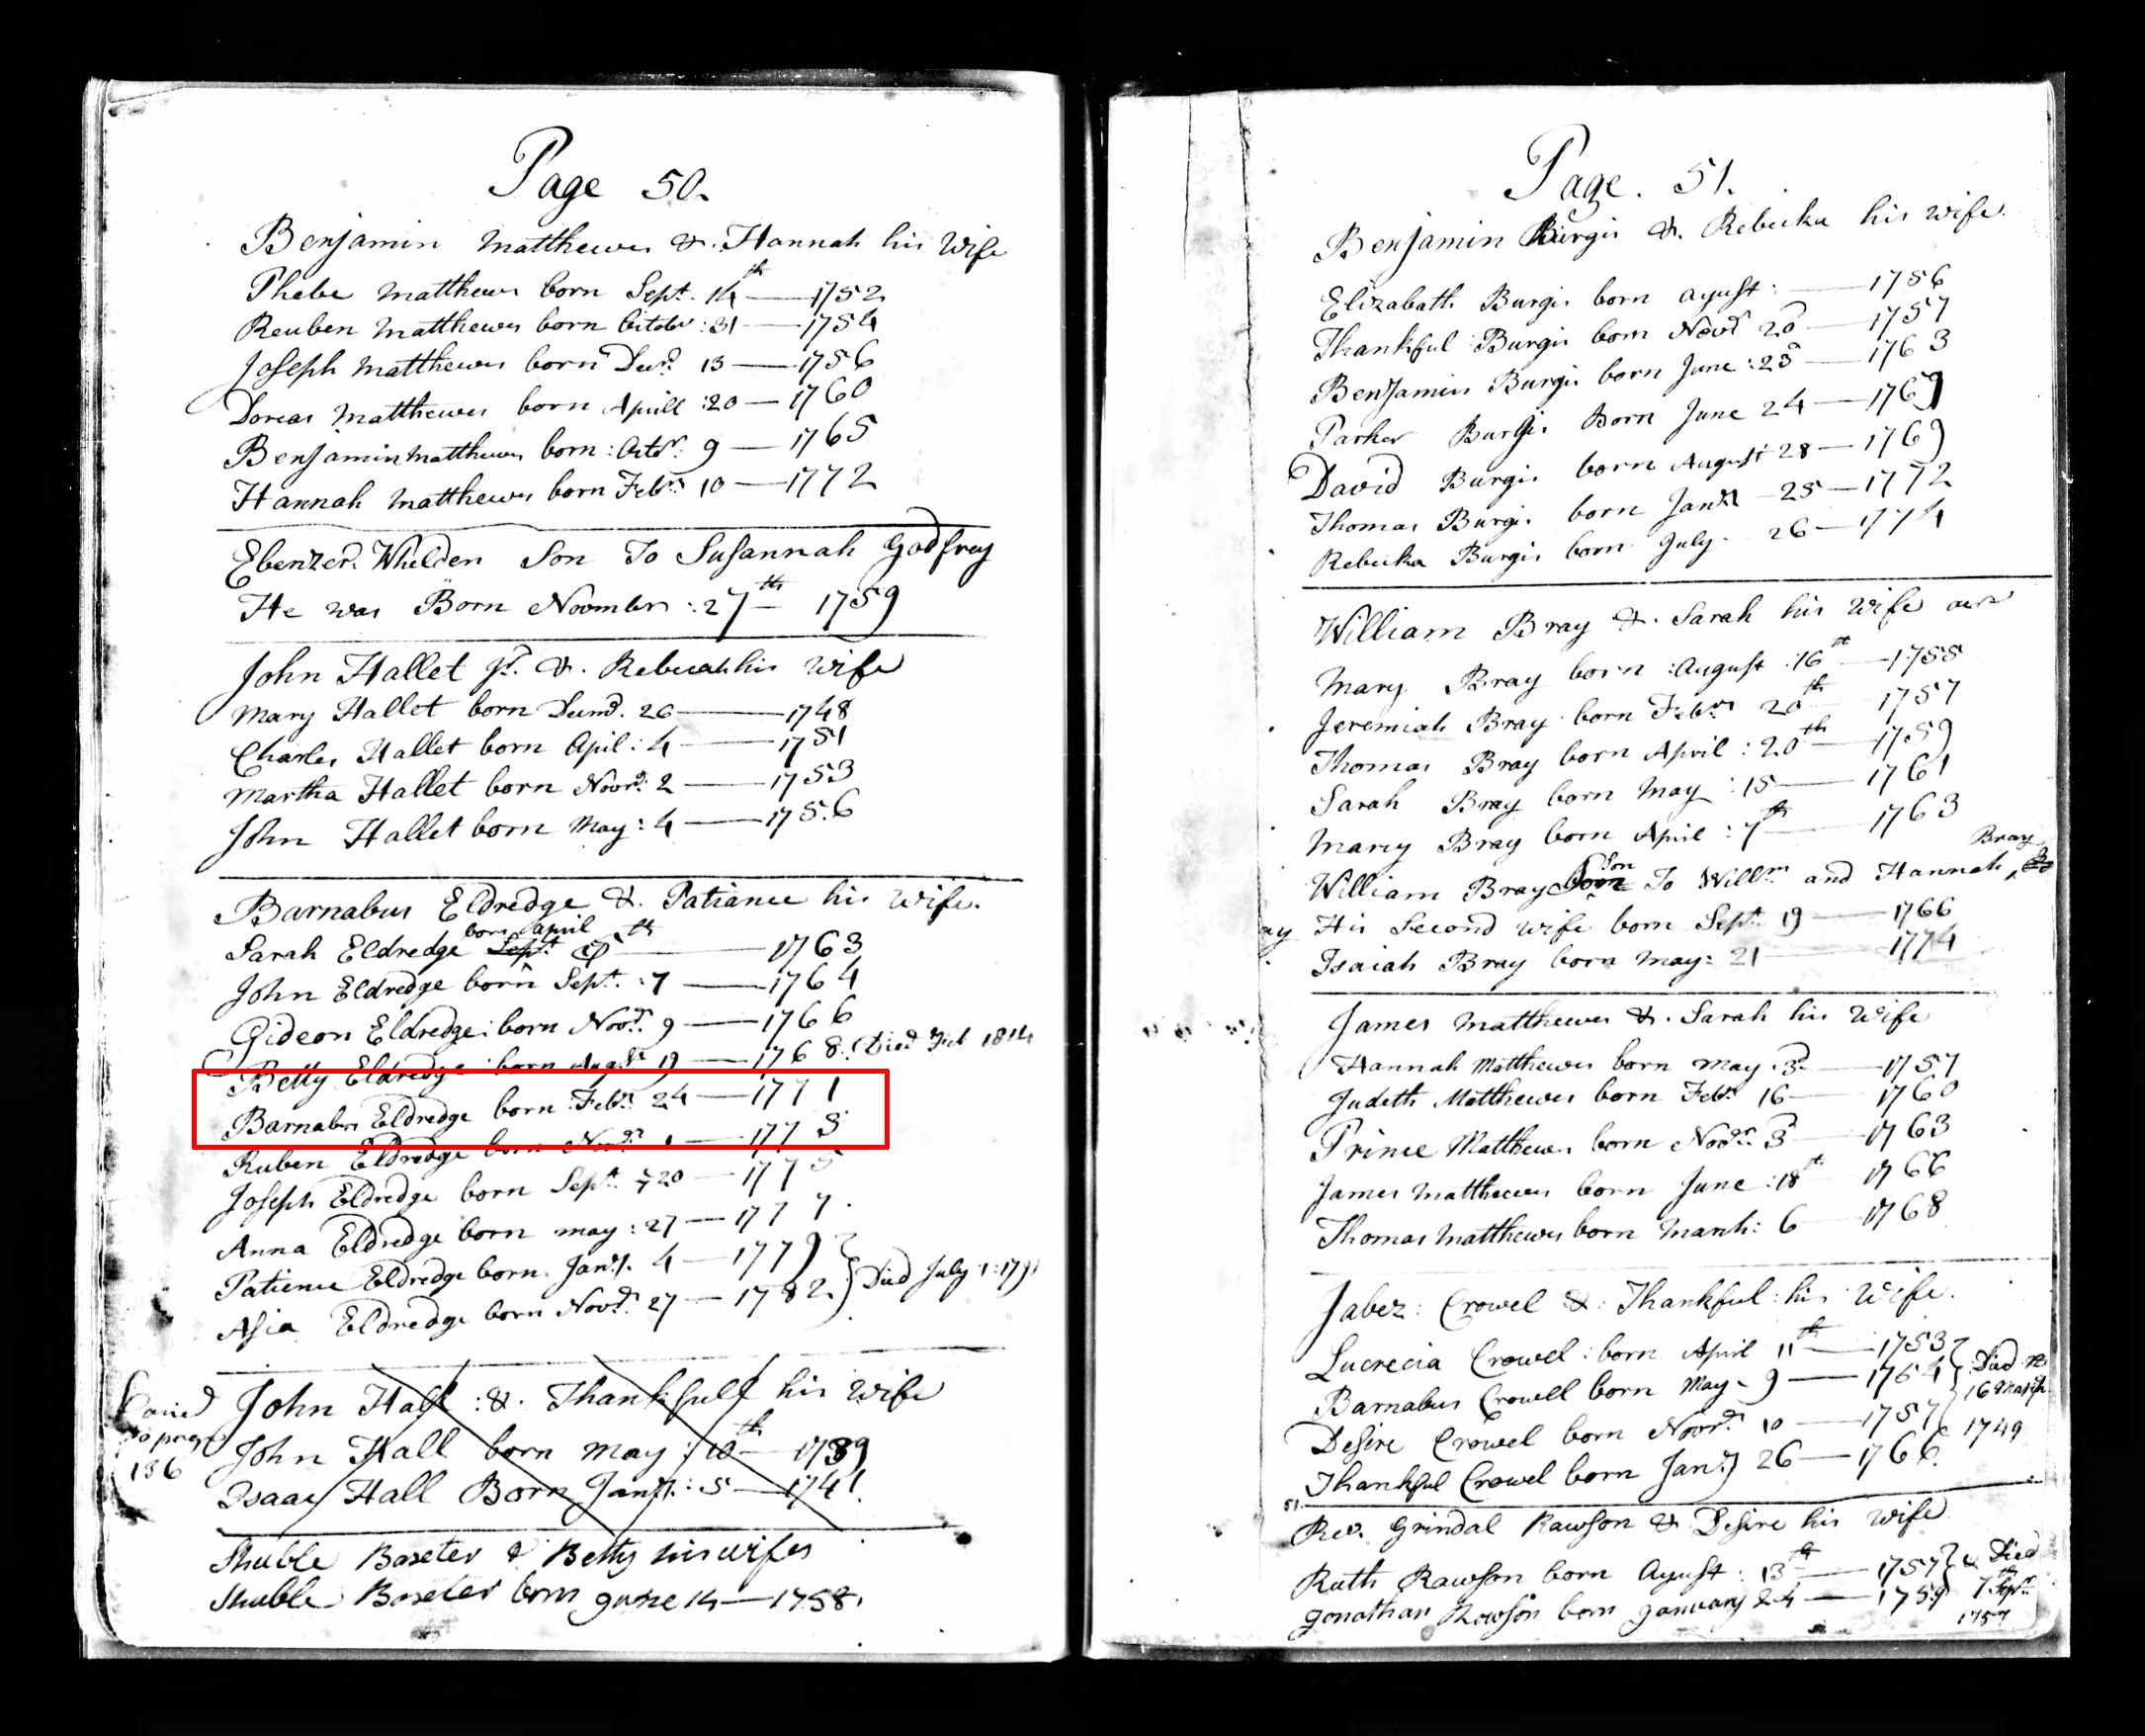 Page 50.
Benjamin Matthews &. Hannah his Wife
Phebe Matthews born Sept. 14th — 1752
Reuben Matthews born October : 31 — 1754
Joseph Matthews born Decr. 13 — 1756
Dorcas Matthews born Aprill :20 — 1760
Benjamin Matthews born : Octor. 9 — 1765
Hannah Matthews born Febr. 10 — 1772
Ebenzer. Whelden Son To Susannah Godfrey
He was Born Noomber :27th 1759
John Hallet Jr. &. Rebecah his wife
Mary Hallet born 26 — 1748
Charles Hallet born Apil : 4 — 1751
Martha Hallet born Noor. 2 — 1753
John Hallet born May : 4 — 1756
Barnabus Eldredge &. Patiance his wife.
Sarah Eldredge born April Sept. th — 1763
John Eldredge born Sept. :7 — 1764
Gideon Eldredge : born Noor. 9 — 1766
Betty Eldredge born Augst. 19 — 1768. Died Feb 1814
Barnabus Eldredge born Febr. 24 — 1771
Ruben Eldredge born Noor. 1 — 1773
Joseph Eldredge born Sept. 20 — 1775
Anna Eldredge born may : 27 — 1777.
Patience Eldredge born Jany. 4 — 1779
Asia Eldredge born Novr. 27 — 1782 } Died July 1:
John Hall : &. Thankfull his wife
John Hall born May : 10th — 1739
Isaac Hall Born Jany. : 5 — 1741
136
Shuble Baxeter & Betty his wifes
Shuble Baxeter born June 14 — 1758.
Page. 51.
Benjamin Burgis &. Rebecka his wife.
Elizabath Burgis born agust : — 1756
Thankful Burgis born Novr 20 — 1757
Benjamin Burgis born June : 23 — 1763
Parker Burgis Born June 24 — 1769
David Burgis born August 28 — 1769
Thomas Burgis born Jany 25 — 1772
Rebecka Burgis born July. 26 — 1774
William Bray &. Sarah his wife
Mary Bray born :August :16th — 1755
Jeremiah Bray born Febr. 20th — 1757
Thomas Bray born April : 20th — 1759
Sarah Bray born May : 15 — 1761
Marcy Bray born April : 7th — 1763
William Bray born Son To Willm and Hannah Bray
His Second wife born Sept. 19 — 1766
Isaiah Bray born may : 21 — 1774
James Matthews &. Sarah his Wife
Hannah Matthews born may .3d — 1757
Judeth Matthews born Febr. 16 — 1760
Prince Matthews born Noor. 3 — 1763
James Matthews born June :18th 1766
Thomas Matthews born March : 6 — 1768
Jabez : Crowel &. Thankful : his Wife.
Lucrecia Crowel : born April 11th — 1753
Barnabus Crowell born May - 9 — 1754 } Died
Desire Crowel born Noor. 10 — 1757 16 March 1749
Thankful Crowel born Jany 26 — 1766.
51.
Rev. Grindal Rawson & Desire his wife
Ruth Rawson born Agust : 13th — 1757 } Died
Jonathan Rowson born January 24 — 1759 7th Sepr. 1757